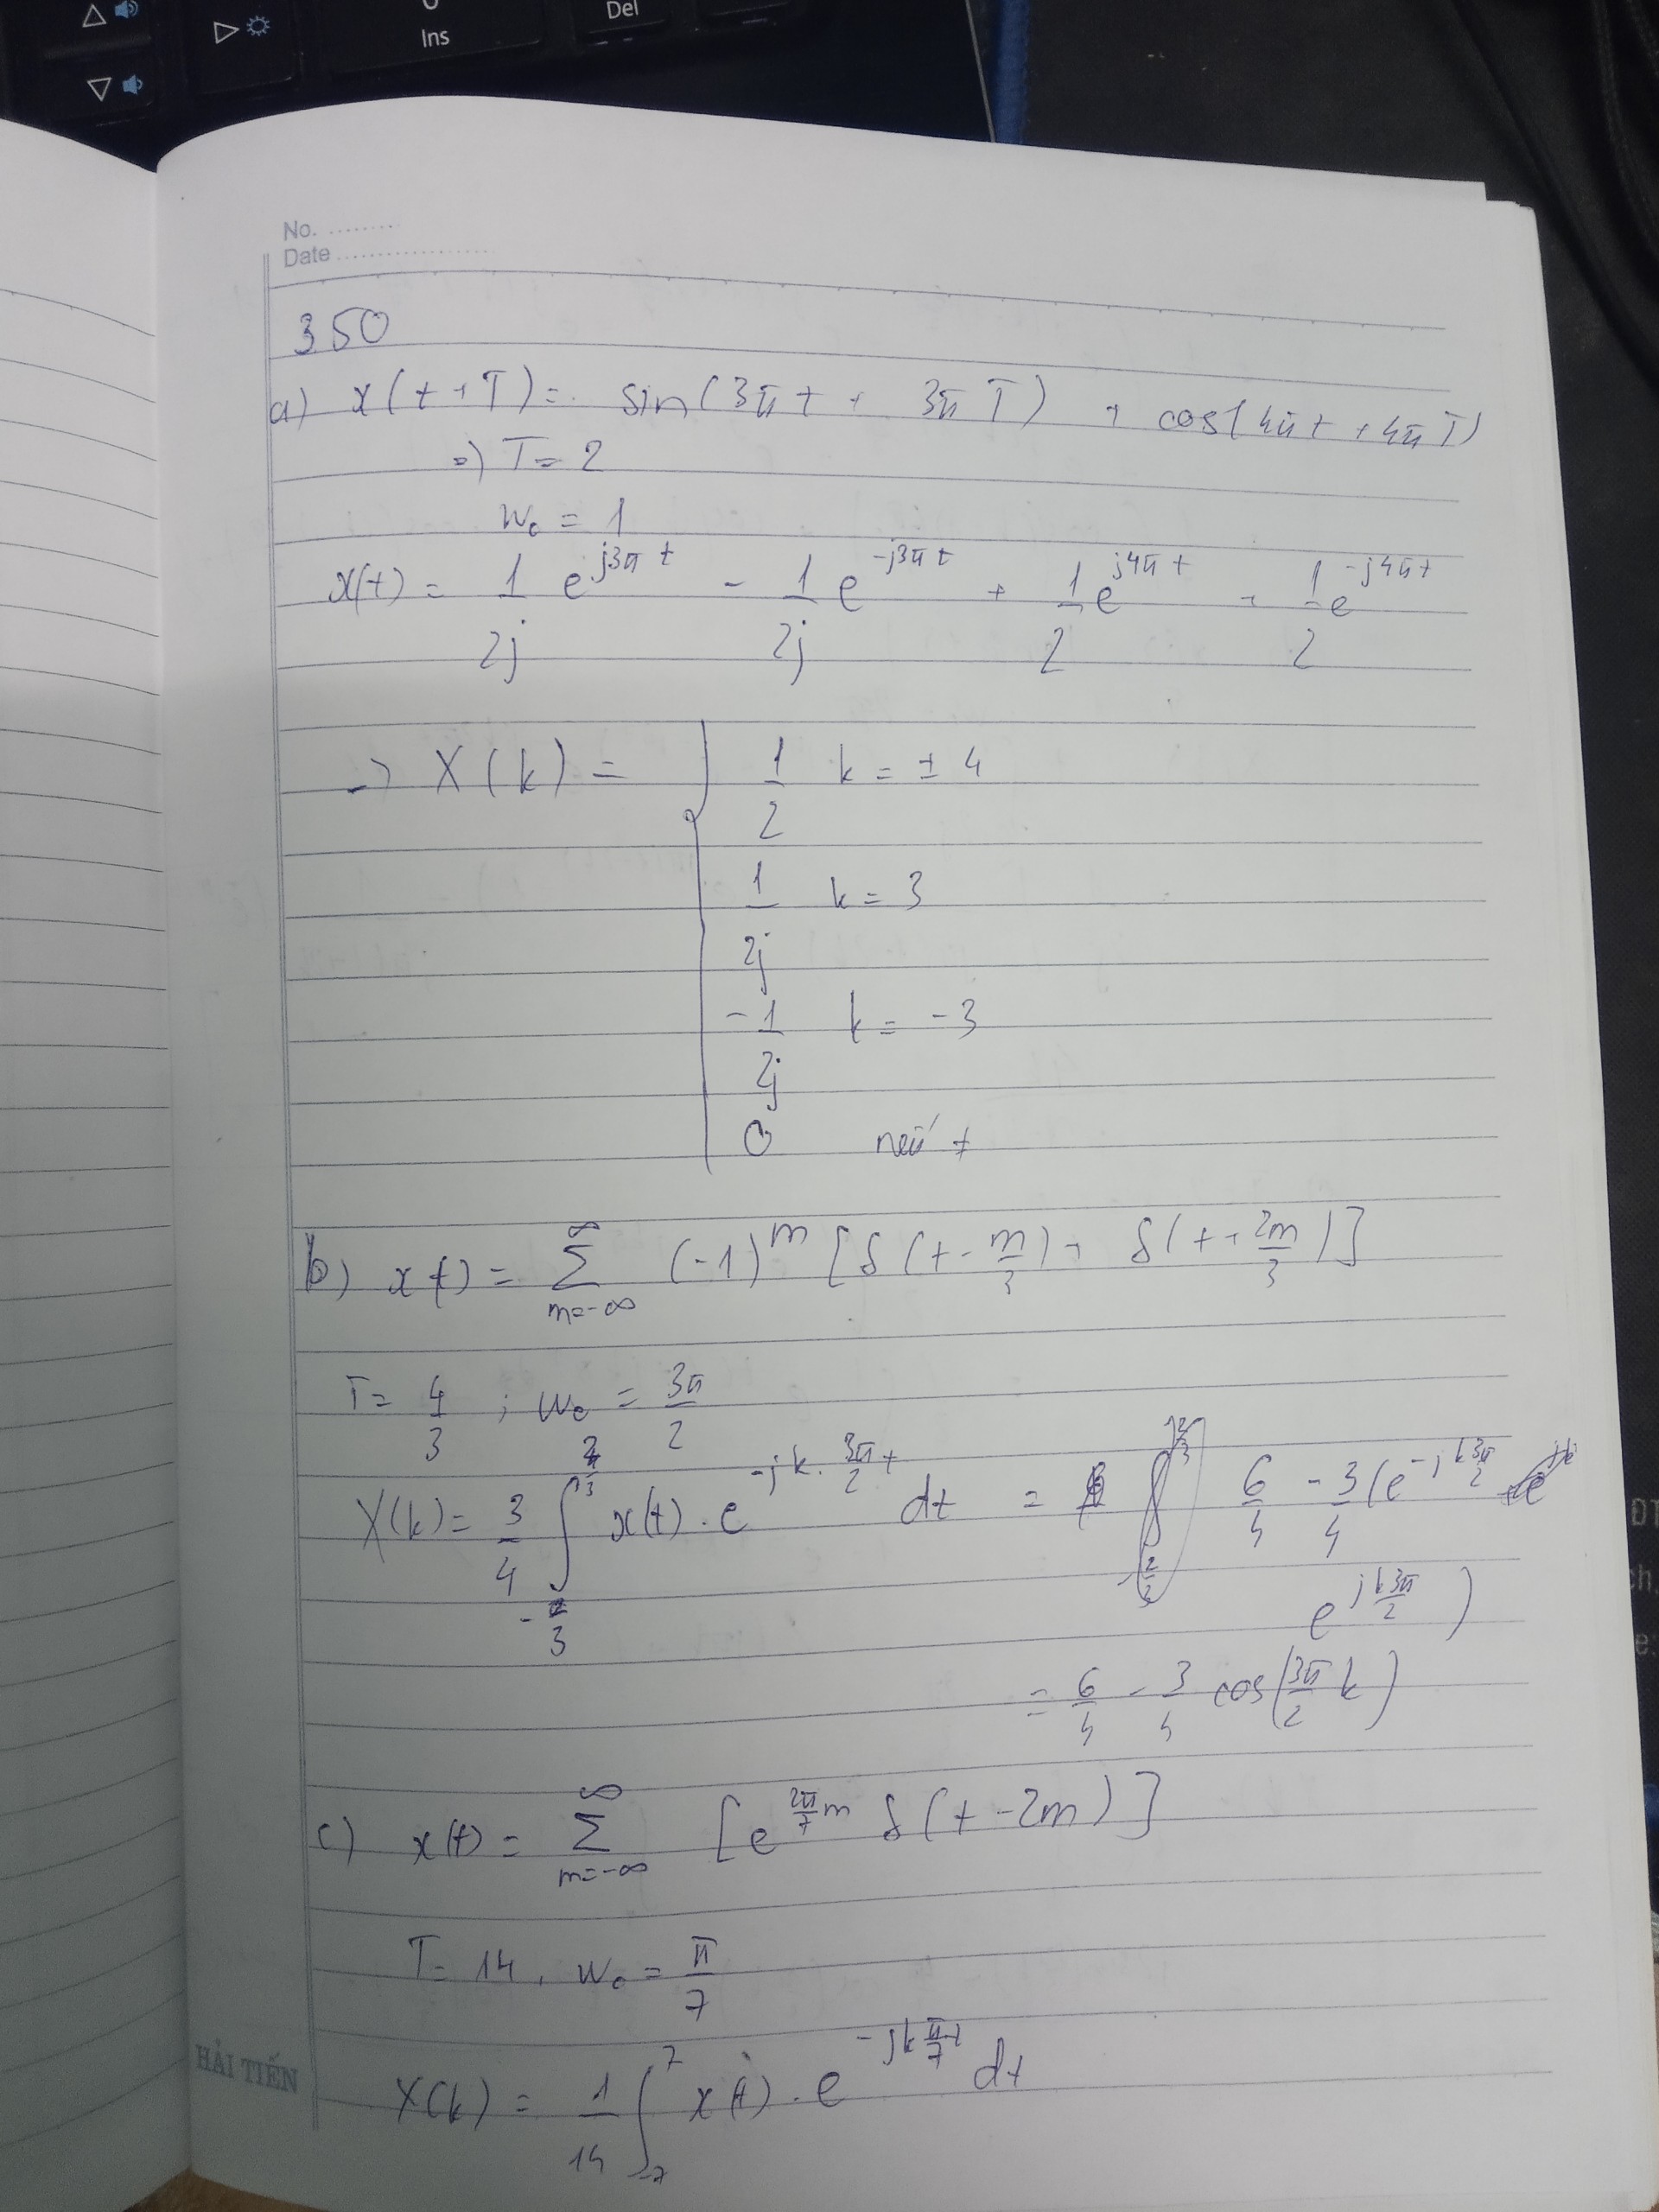 Ins
Del
No. ..........
Date ......................
350
a) x(t+T) = sin(3πt + 3πT) + cos(4πt + 4πT)
=) T = 2
w₀ = 1
x(t) = 1/2j e^{j3πt} - 1/2j e^{-j3πt} + 1/2 e^{j4πt} + 1/2 e^{-j4πt}
-> X(k) = { 1/2 k = ± 4
1/2j k = 3
-1/2j k = -3
0 nếu ≠
b) x(t) = Σ_{m=-∞}^{∞} (-1)^m [δ(t - m/3) + δ(t + 2m/3)]
T = 4/3 ; w₀ = 3π/2
X(k) = 3/4 ∫_{-2/3}^{2/3} x(t) . e^{-jk. 3π/2 t} dt = 6/4 - 3/4 (e^{-jk 3π/2}
e^{jk 3π/2} )
= 6/4 - 3/4 cos(3π/2 k)
c) x(t) = Σ_{m=-∞}^{∞} [e^{2π/7 m} δ(t - 2m)]
T = 14 . w₀ = π/7
HẢI TIẾN
X(k) = 1/14 ∫_{-7}^{7} x(t) . e^{-jk π/7 t} dt